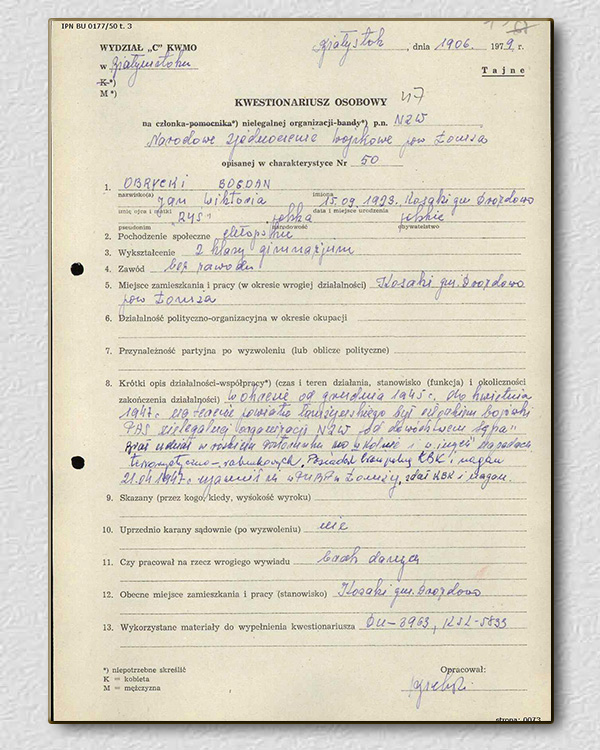 IPN BU 0177/50 t. 3
WYDZIAŁ „C" KWMO Białystok, dnia 1906. 1979. r.
w Białymstoku
K *) Tajne
M *)
KWESTIONARIUSZ OSOBOWY 47
na członka-pomocnika*) nielegalnej organizacji-bandy*) p.n. NZW
Narodowe Zjednoczenie Wojskowe pow. Łomża
opisanej w charakterystyce Nr 50
1. OBRYCKI BOGDAN
nazwisko(a) imiona
Jan Wiktoria 15.09.1923. Kosaki gm. Drozdowo
imię ojca i matki data i miejsce urodzenia
polska polskie
pseudonim narodowość obywatelstwo
2. Pochodzenie społeczne chłopskie
3. Wykształcenie 2 klasy gimnazjum
4. Zawód bez zawodu
5. Miejsce zamieszkania i pracy (w okresie wrogiej działalności) Kosaki gm. Drozdowo
pow Łomża
6. Działalność polityczno-organizacyjna w okresie okupacji
7. Przynależność partyjna po wyzwoleniu (lub oblicze polityczne)
8. Krótki opis działalności-współpracy*) (czas i teren działania, stanowisko (funkcja) i okoliczności
zakończenia działalności) W okresie od grudnia 1945r. do kwietnia
1947r. na terenie powiatu łomżyńskiego był członkiem bojówki
PAS nielegalnej organizacji NZW pod dowództwem
Brał udział w rozbiciu posterunku MO w Kolnie i w innych napadach
terrorystyczno-rabunkowych. Posiadał broń palną KBK i nagan
21.04.1947r. ujawnił się w PUBP w Łomży, zdał KBK i nagan.
9. Skazany (przez kogo, kiedy, wysokość wyroku)
10. Uprzednio karany sądownie (po wyzwoleniu) nie
11. Czy pracował na rzecz wrogiego wywiadu brak danych
12. Obecne miejsce zamieszkania i pracy (stanowisko) Kosaki gm. Drozdowo
13. Wykorzystane materiały do wypełnienia kwestionariusza
*) niepotrzebne skreślić
K = kobieta
M = mężczyzna
Opracował:
strona: 0073